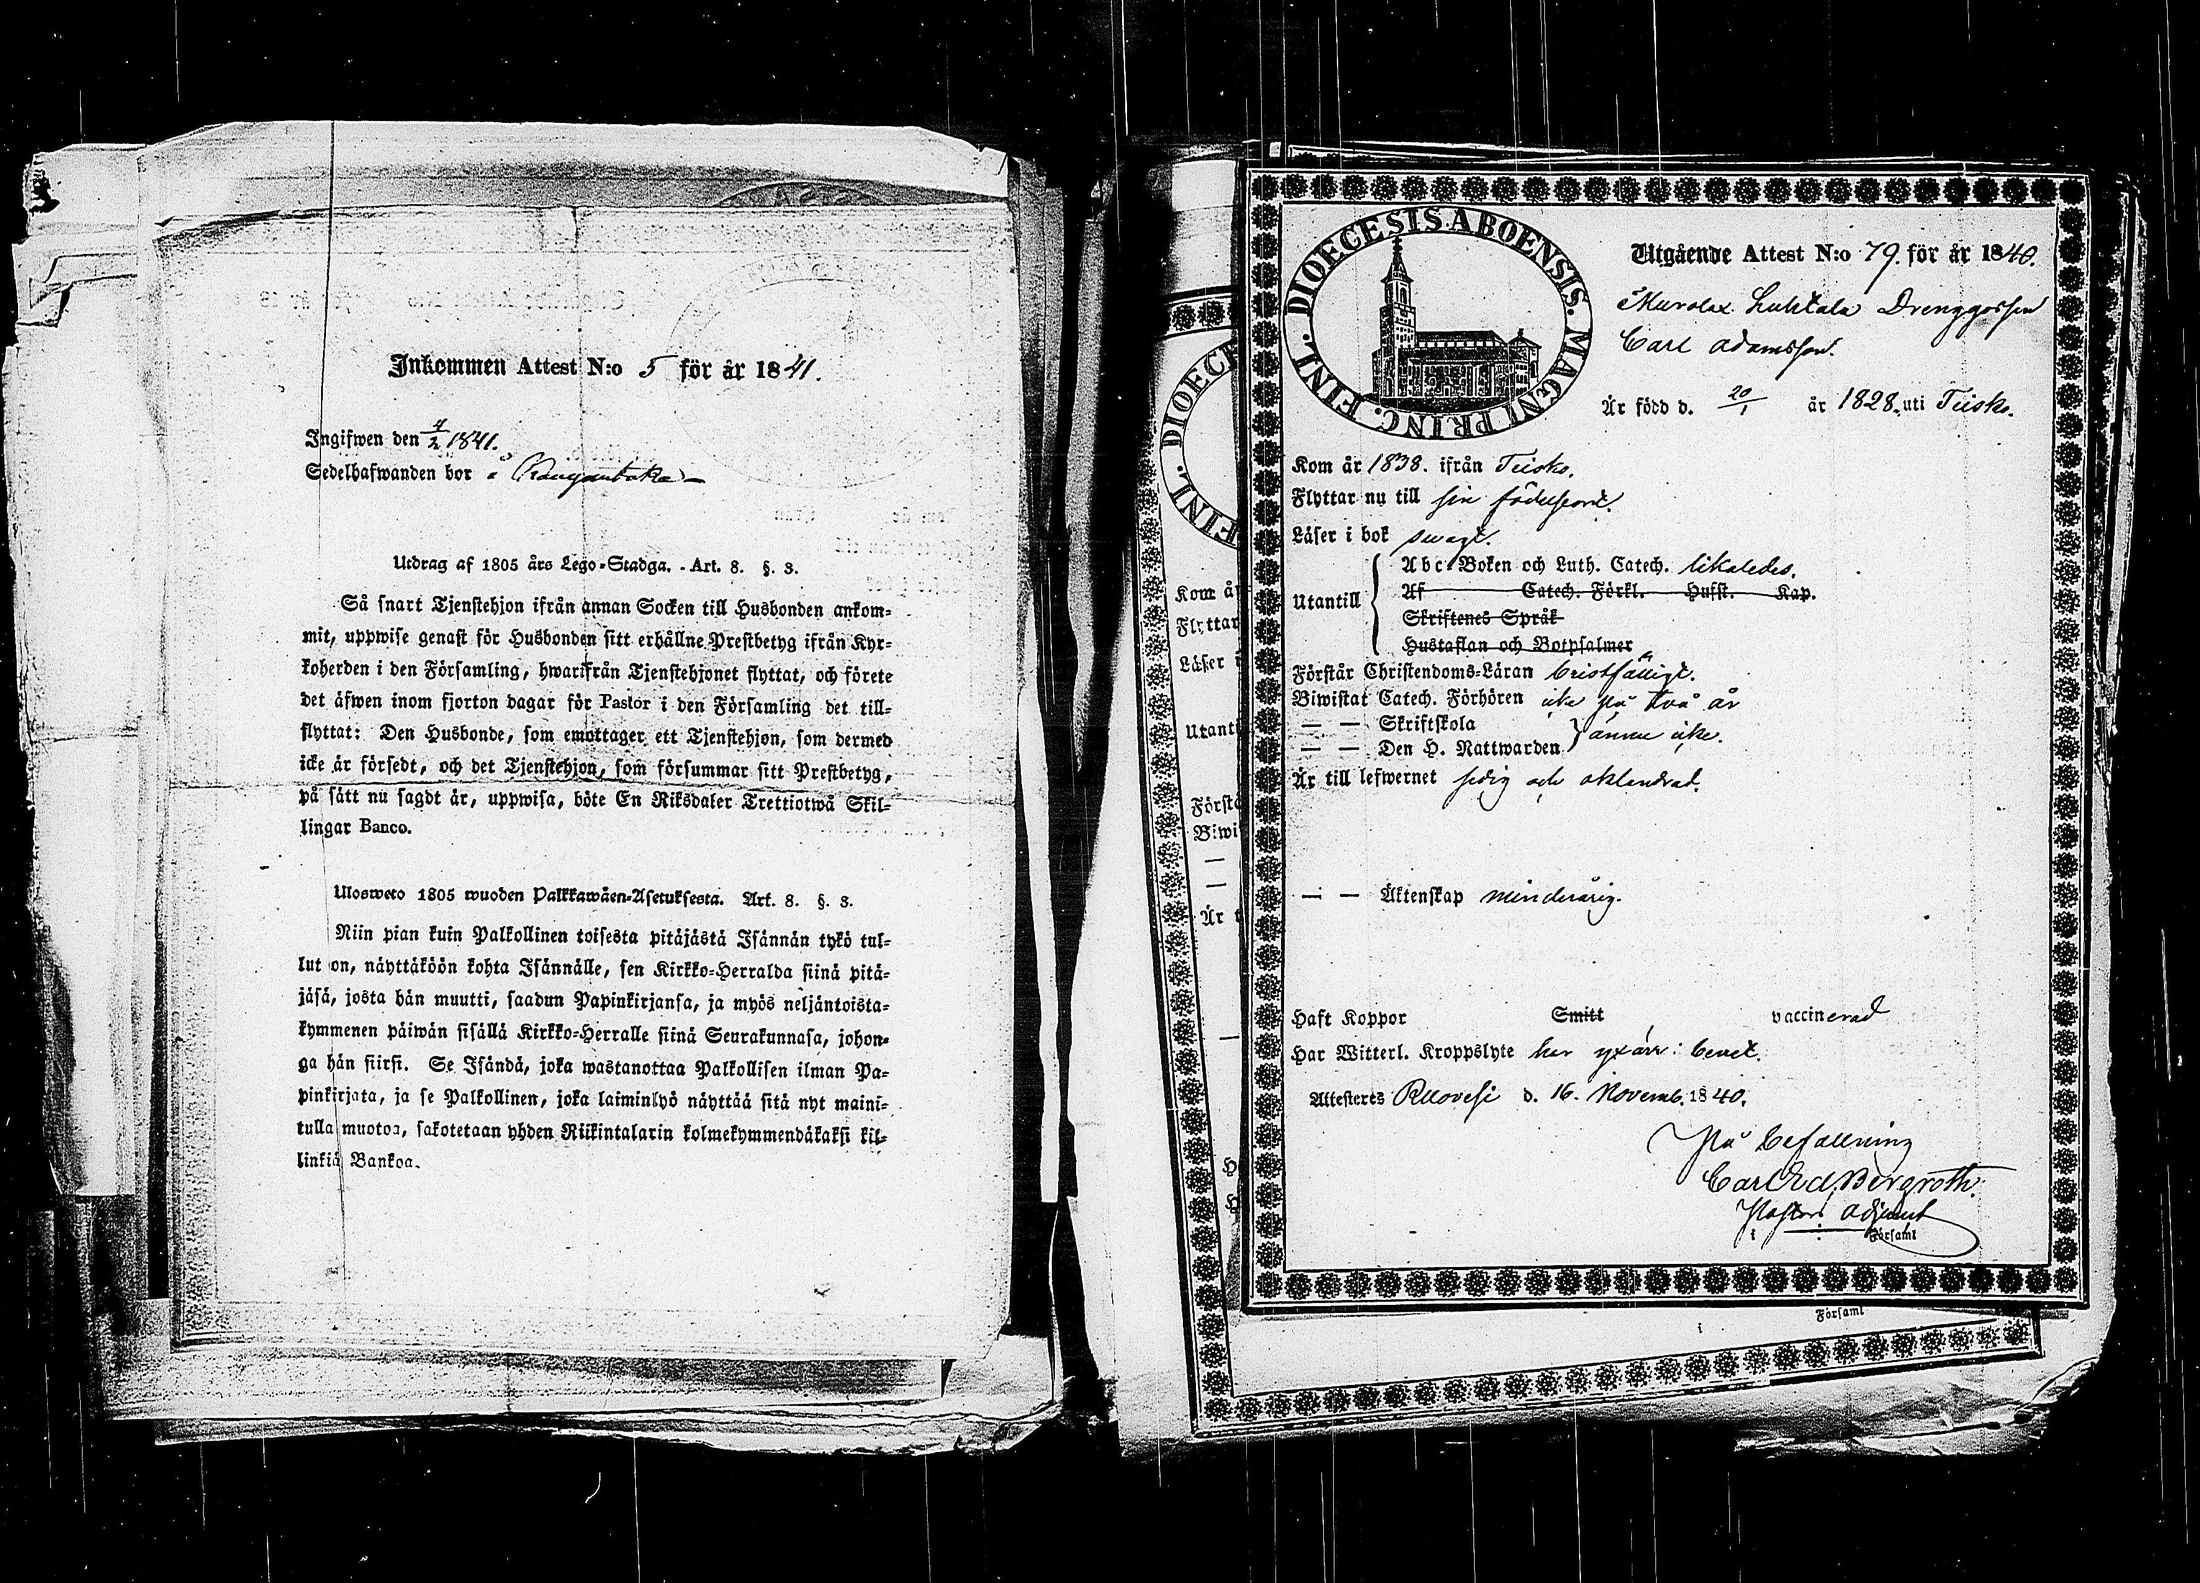 Inkommen Attest N:o 5 för år 1841.
Ingifwen den 4/2 1841.
Sedelhafwanden bor å
Utdrag af 1805 års Lego-Stadga. Art. 8. §. 3.
Så snart Tjenstehjon ifrån annan Socken till Husbonden ankom-
mit, uppwise genast för Husbonden sitt erhållne Prestbetyg ifrån Kyr-
koherden i den Församling, hwarifrån Tjenstehjonet flyttat, och förete
det äfwen inom fjorton dagar för Pastor i den Församling det till-
flyttat: Den Husbonde, som emottager ett Tjenstehjon, som dermed
icke är försedt, och det Tjenstehjon, som försummar sitt Prestbetyg,
på sätt nu sagdt är, uppwisa, böte En Riksdaler Trettiotwå Skil-
lingar Banco.
Ulosweto 1805 wuoden Palkkawäen-Asetuksesta. Art. 8. §. 3.
Niin pian kuin Palkollinen toisesta pitäjästä Isännän tykö tul-
lut on, näyttäköön kohta Isännälle, sen Kirkko-Herralda siinä pitä-
jäsä, josta hän muutti, saadun Papinkirjansa, ja myös neljäntoista-
kymmenen päiwän sisällä Kirkko-Herralle siinä Seurakunnasa, johon-
ga hän siirsi. Se Isändä, joka wastanottaa Palkollisen ilman Pa-
pinkirjata, ja se Palkollinen, joka laiminlyö näyttää sitä nyt maini-
tulla muotoa, sakotetaan yhden Riikintalarin kolmekymmendäkaksi kil-
linkiä Bankoa.
DIOECESIS ABOENSIS. MAGNI PRINC. FINL.
Utgående Attest N:o 79. för år 1840.
Murolax Luhtala Drenggossen
Carl Adamsson.
Är född d. 20/1 år 1828. uti Teisko.
Kom år 1838. ifrån Teisko.
Flyttar nu till sin födelseort.
Läser i bok swagt.
Utantill
Abc-Boken och Luth. Catech. likaledes.
Af Catech. Förkl. Husst. Kap.
Skriftenes Språk
Hustaflan och Botpsalmer
Förstår Christendoms-Läran bristfälligt.
Biwistat Catech. Förhören icke på två år
— — Skriftskola
— — Den H. Nattwarden } ännu icke.
Är till lefwernet sedig och oklandrad.
— — Äktenskap minderårig.
Haft Koppor Smitt vaccinerad
Har Witterl. Kroppslyte har
Attesteres Ruovesi d. 16. Novemb. 1840.
På befallning
Carl Ed. Bergroth.
Pastors Adjunct
i Församl
DIOECE
FINL.
Kom år
Flyttar
Läser i
Utanti
Förstå
Biwi
—
—
Är t
—
H
H
Församl
i